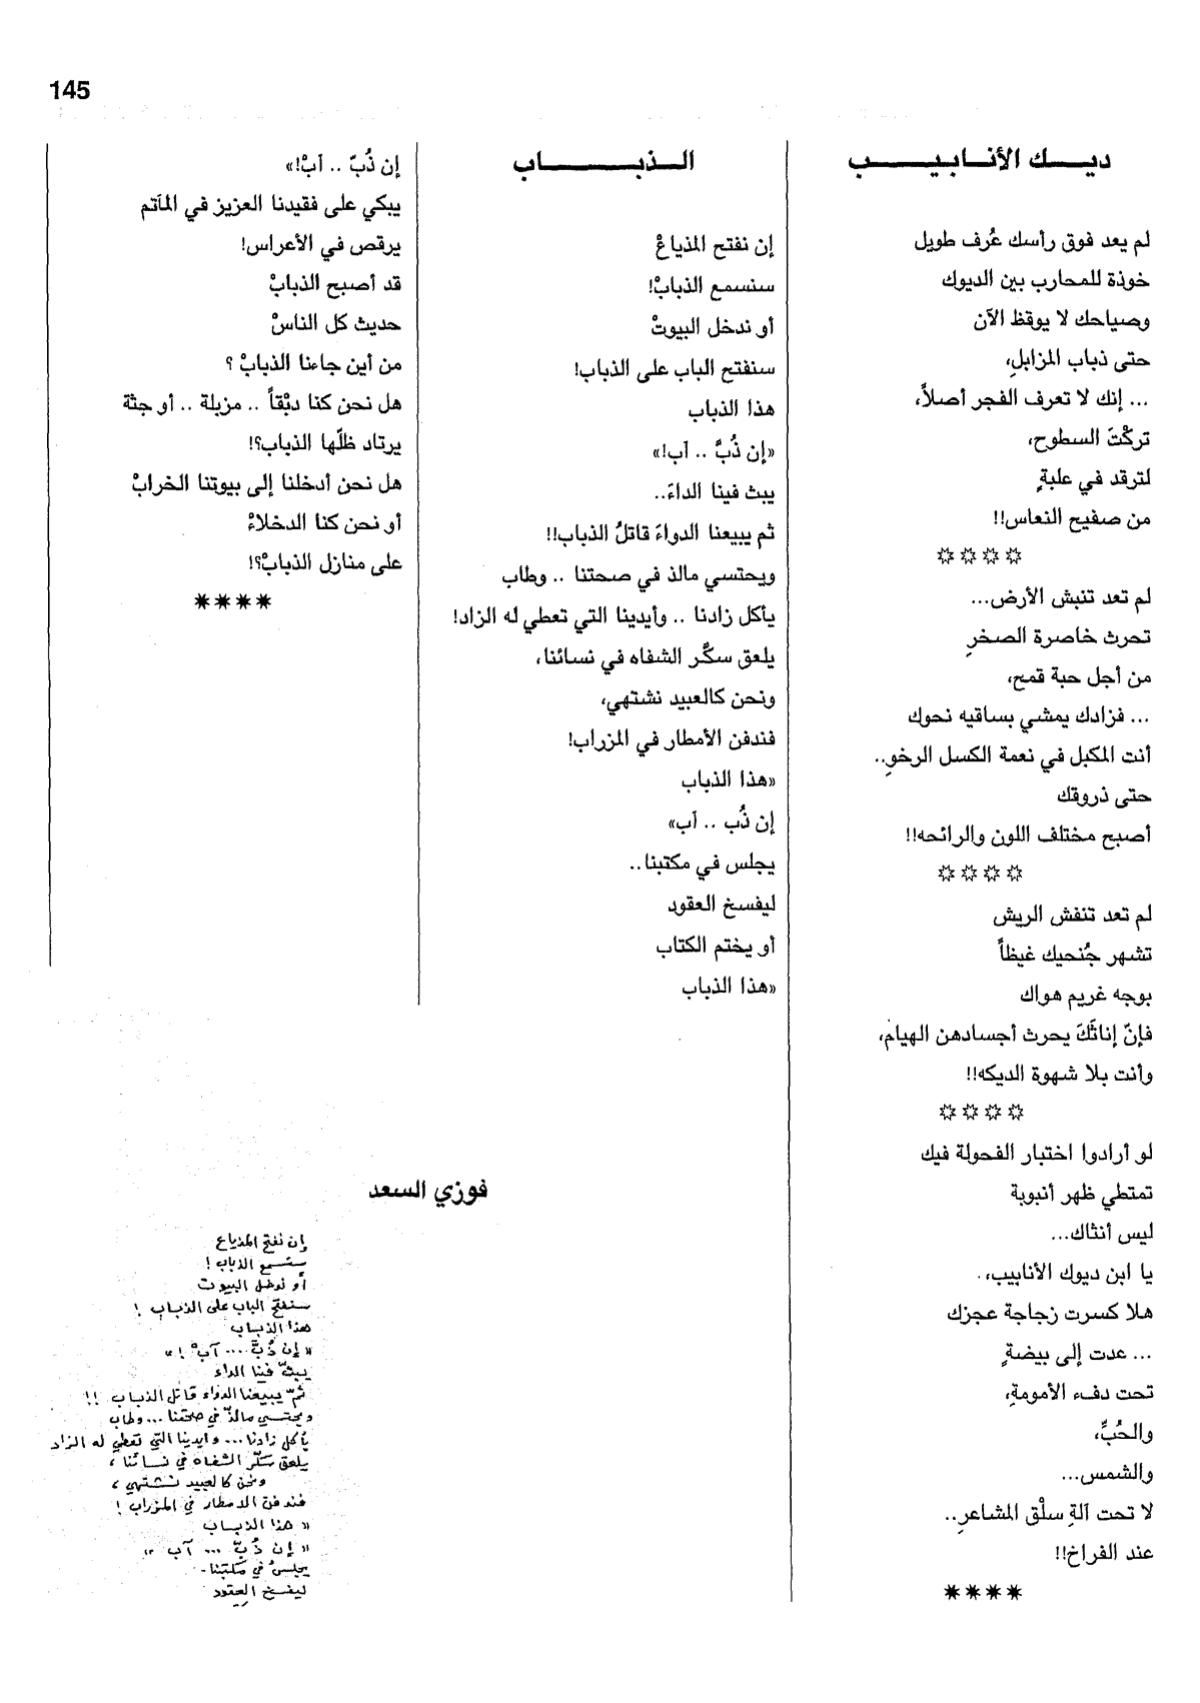 145
ديـــك الأنـــابيـــب
لم يعد فوق رأسك عُرف طويل
خوذة للمحارب بين الديوك
وصياحك لا يوقظ الآن
حتى ذباب المزابلِ،
... إنك لا تعرف الفجر أصلاً،
تركْتَ السطوح،
لترقد في علبةٍ
من صفيح النعاس!!
☼ ☼ ☼ ☼
لم تعد تنبش الأرض...
تحرث خاصرة الصخرِ
من أجل حبة قمح،
... فزادك يمشي بساقيه نحوك
أنت المكبل في نعمة الكسل الرخوِ..
حتى ذروقك
أصبح مختلف اللون والرائحه!!
☼ ☼ ☼ ☼
لم تعد تنفش الريش
تشهر جُنحيك غيظاً
بوجه غريم هواك
فإنّ إناثَكَ يحرث أجسادهن الهيام،
وأنت بلا شهوة الديكه!!
☼ ☼ ☼ ☼
لو أرادوا اختبار الفحولة فيك
تمتطي ظهر أنبوبة
ليس أنثاك...
يا ابن ديوك الأنابيب،
هلا كسرت زجاجة عجزك
... عدت إلى بيضةٍ
تحت دفء الأمومةِ،
والحُبِّ،
والشمس...
لا تحت آلةِ سلْق المشاعرِ..
عند الفراخ!!
✷ ✷ ✷ ✷
الـــذبـــــــاب
إن نفتح المذياعْ
سنسمع الذبابْ!
أو ندخل البيوتْ
سنفتح الباب على الذباب!
هذا الذباب
«إن ذُبَّ .. آب!»
يبث فينا الداءَ..
ثم يبيعنا الدواءَ قاتلُ الذباب!!
ويحتسي مالذ في صحتنا .. وطاب
يأكل زادنا .. وأيدينا التي تعطي له الزاد!
يلعق سكَّر الشفاه في نسائنا،
ونحن كالعبيد نشتهي،
فندفن الأمطار في المزراب!
«هذا الذباب
إن ذُب .. آب»
يجلس في مكتبنا..
ليفسخ العقود
أو يختم الكتاب
«هذا الذباب
إن ذُبّ .. آبْ!»
يبكي على فقيدنا العزيز في المآتم
يرقص في الأعراس!
قد أصبح الذبابْ
حديث كل الناسْ
من أين جاءنا الذبابْ ؟
هل نحن كنا دبْقاً .. مزبلة .. أو جثة
يرتاد ظلّها الذباب؟!
هل نحن أدخلنا إلى بيوتنا الخرابْ
أو نحن كنا الدخلاءْ
على منازل الذبابْ؟!
✷ ✷ ✷ ✷
فوزي السعد
إن نفتح المذياع
سنسمع الذباب !
أو ندخل البيوت
سنفتح الباب على الذباب !
هذا الذباب
« إن ذُبَّ ... آبْ ! »
يبثّ فينا الداء
ثمّ يبيعنا الدواء قاتل الذباب !!
ويحتسي مالذّ في صحتنا ... وطاب
يأكل زادنا ... وأيدينا التي تعطي له الزاد
يلعق سكّر الشفاه في نسائنا ،
ونحن كالعبيد نشتهي ،
فندفن الأمطار في المزراب !
« هذا الذباب
« إن ذُبّ ... آب »
يجلسُ في مكتبنا..
ليفسخ العقود